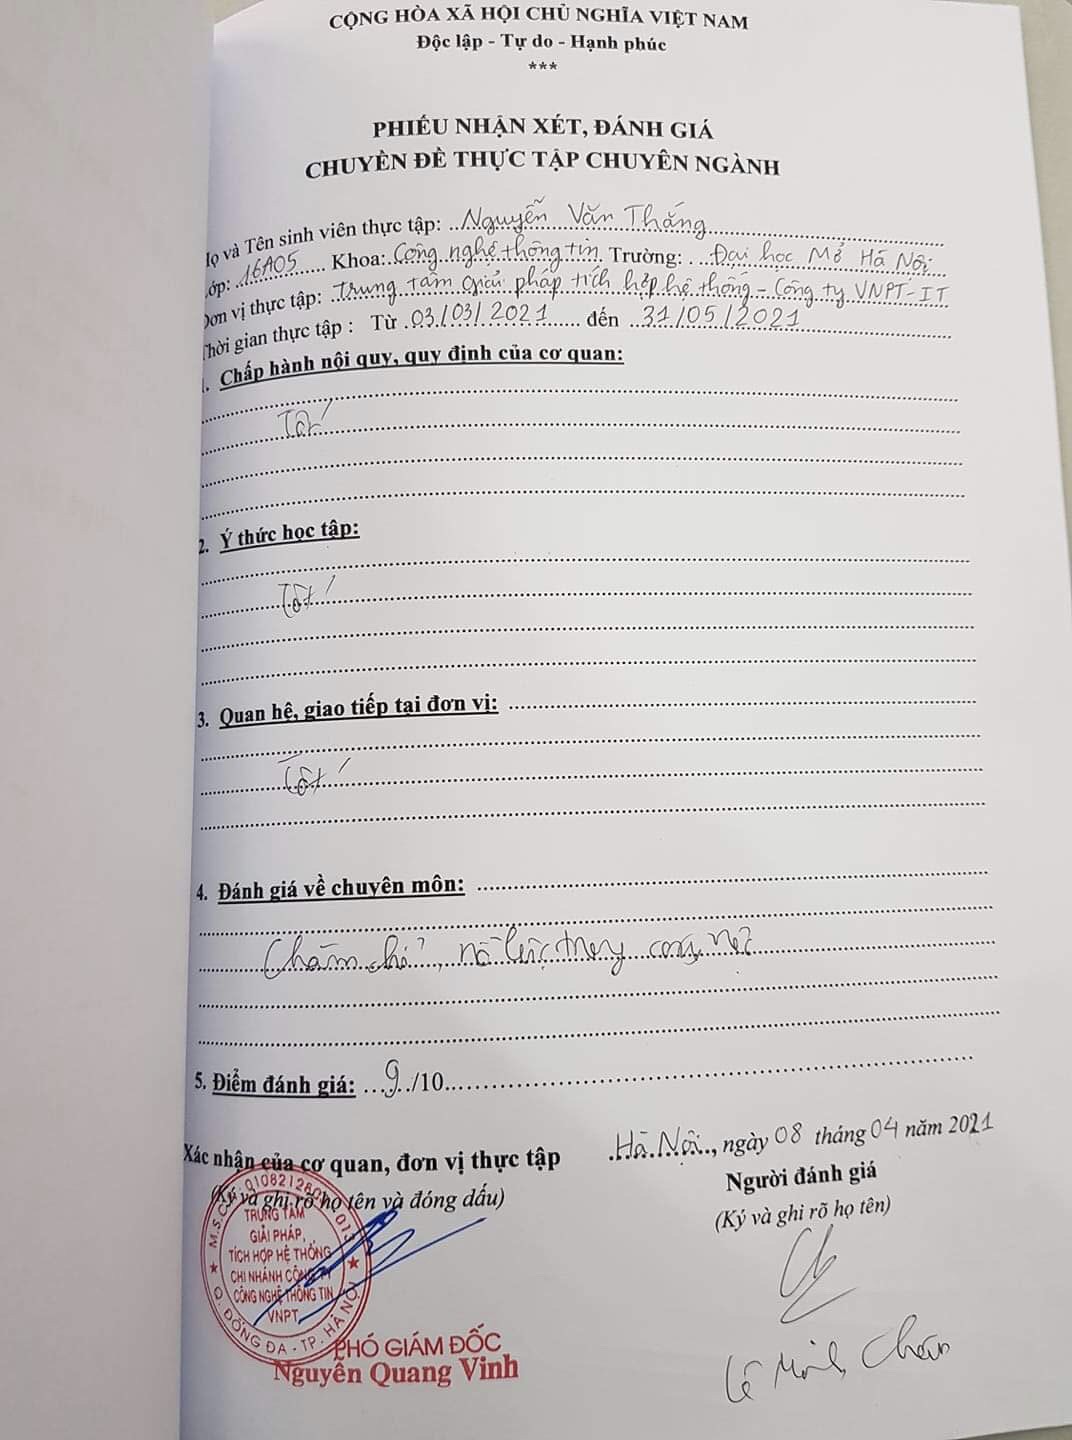 CỘNG HÒA XÃ HỘI CHỦ NGHĨA VIỆT NAM
Độc lập - Tự do - Hạnh phúc
***
PHIẾU NHẬN XÉT, ĐÁNH GIÁ
CHUYÊN ĐỀ THỰC TẬP CHUYÊN NGÀNH
Họ và Tên sinh viên thực tập: Nguyễn Văn Thắng
Lớp: 16A05 Khoa: Công nghệ thông tin Trường: Đại học Mở Hà Nội
Đơn vị thực tập: Trung tâm giải pháp tích hợp hệ thống - Công ty VNPT-IT
Thời gian thực tập : Từ 03/03/2021 đến 31/05/2021
1. Chấp hành nội quy, quy định của cơ quan:
Tốt
2. Ý thức học tập:
Tốt
3. Quan hệ, giao tiếp tại đơn vị:
Tốt
4. Đánh giá về chuyên môn:
Chăm chỉ, nỗ lực trong công việc
5. Điểm đánh giá: 9/10
Hà Nội, ngày 08 tháng 04 năm 2021
Xác nhận của cơ quan, đơn vị thực tập
Người đánh giá
(Ký và ghi rõ họ tên và đóng dấu)
(Ký và ghi rõ họ tên)
TRUNG TÂM
GIẢI PHÁP,
TÍCH HỢP HỆ THỐNG
CHI NHÁNH CÔNG TY
CÔNG NGHỆ THÔNG TIN
VNPT
Q. ĐỐNG ĐA - TP. HÀ NỘI
PHÓ GIÁM ĐỐC
Nguyễn Quang Vinh
Lê Minh